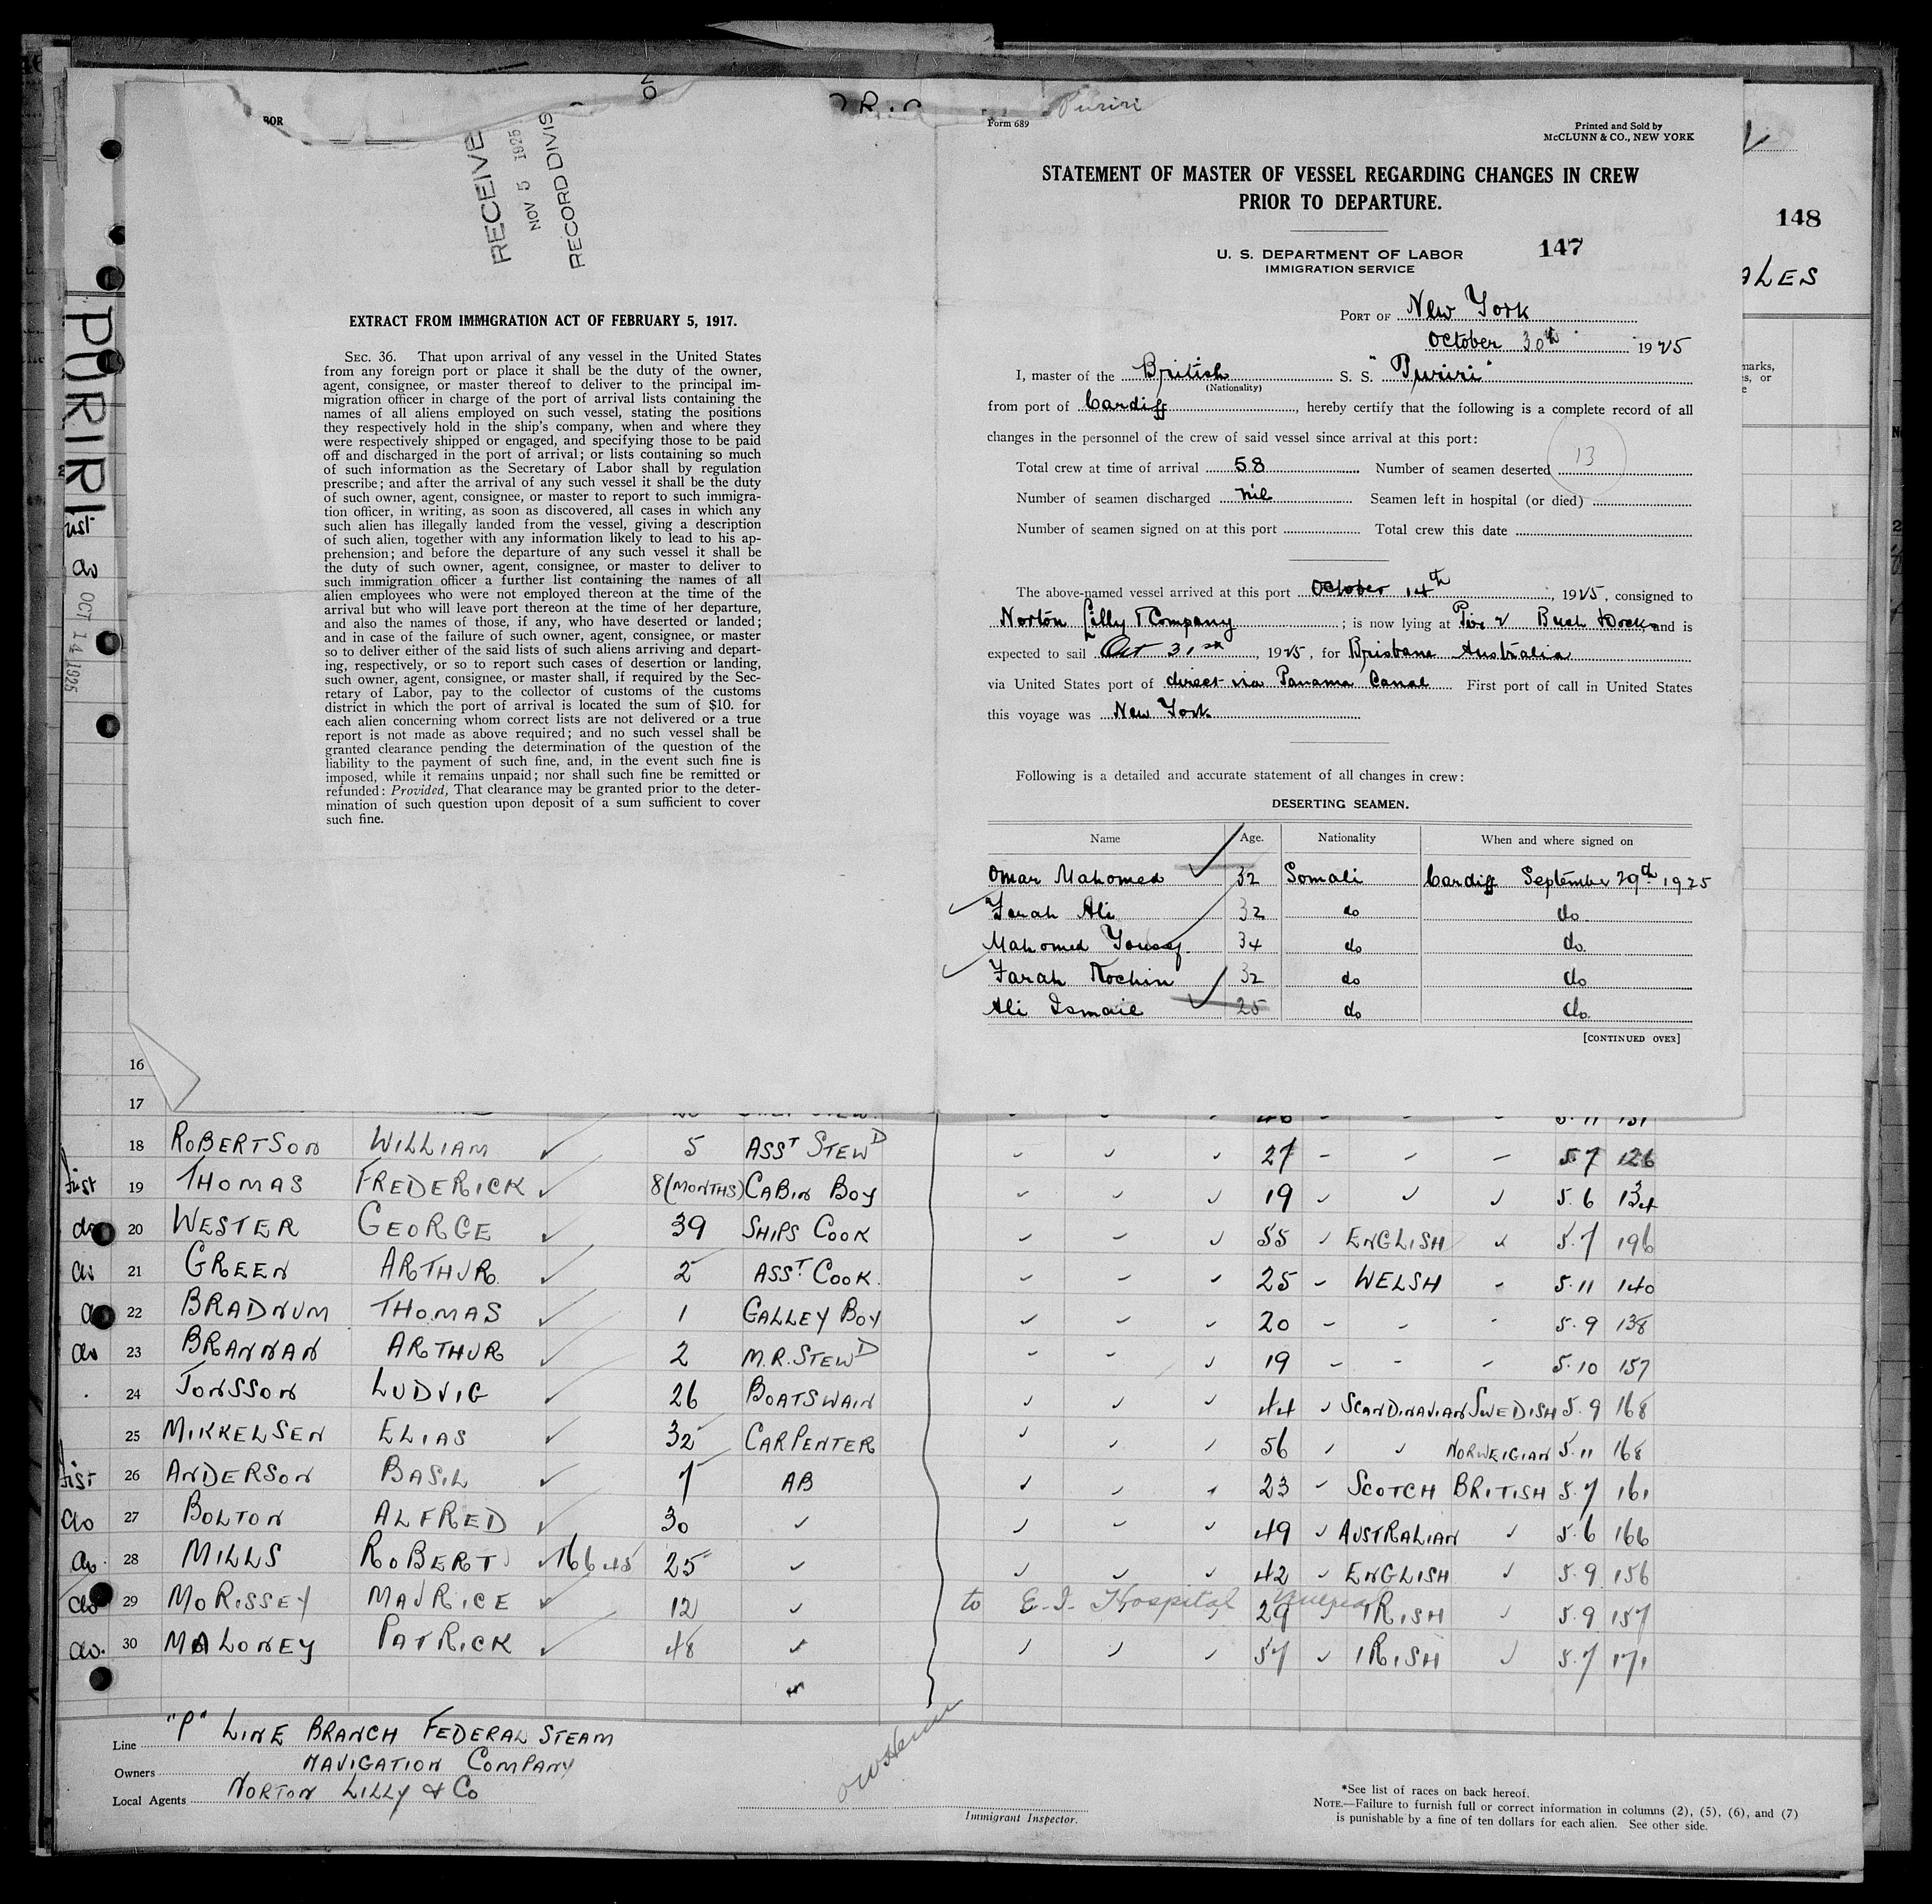 BOR
RECEIVE
NOV 5 1925
RECORD DIVIS
EXTRACT FROM IMMIGRATION ACT OF FEBRUARY 5, 1917.
SEC. 36. That upon arrival of any vessel in the United States
from any foreign port or place it shall be the duty of the owner,
agent, consignee, or master thereof to deliver to the principal im-
migration officer in charge of the port of arrival lists containing the
names of all aliens employed on such vessel, stating the positions
they respectively hold in the ship's company, when and where they
were respectively shipped or engaged, and specifying those to be paid
off and discharged in the port of arrival; or lists containing so much
of such information as the Secretary of Labor shall by regulation
prescribe; and after the arrival of any such vessel it shall be the duty
of such owner, agent, consignee, or master to report to such immigra-
tion officer, in writing, as soon as discovered, all cases in which any
such alien has illegally landed from the vessel, giving a description
of such alien, together with any information likely to lead to his ap-
prehension; and before the departure of any such vessel it shall be
the duty of such owner, agent, consignee, or master to deliver to
such immigration officer a further list containing the names of all
alien employees who were not employed thereon at the time of the
arrival but who will leave port thereon at the time of her departure,
and also the names of those, if any, who have deserted or landed;
and in case of the failure of such owner, agent, consignee, or master
so to deliver either of the said lists of such aliens arriving and depart-
ing, respectively, or so to report such cases of desertion or landing,
such owner, agent, consignee, or master shall, if required by the Sec-
retary of Labor, pay to the collector of customs of the customs
district in which the port of arrival is located the sum of $10. for
each alien concerning whom correct lists are not delivered or a true
report is not made as above required; and no such vessel shall be
granted clearance pending the determination of the question of the
liability to the payment of such fine, and, in the event such fine is
imposed, while it remains unpaid; nor shall such fine be remitted or
refunded: Provided, That clearance may be granted prior to the deter-
mination of such question upon deposit of a sum sufficient to cover
such fine.
Puriri
Form 689
Printed and Sold by
McCLUNN & CO., NEW YORK
STATEMENT OF MASTER OF VESSEL REGARDING CHANGES IN CREW
PRIOR TO DEPARTURE.
147
U. S. DEPARTMENT OF LABOR
IMMIGRATION SERVICE
PORT OF New York
October 30th 1925
I, master of the British S. S. "Puriri"
(Nationality)
from port of Cardiff, hereby certify that the following is a complete record of all
changes in the personnel of the crew of said vessel since arrival at this port:
Total crew at time of arrival 58 Number of seamen deserted 13
Number of seamen discharged nil Seamen left in hospital (or died)
Number of seamen signed on at this port Total crew this date
The above-named vessel arrived at this port October 14th, 1925, consigned to
Norton Lilly & Company; is now lying at Pier 2 Bush Docks, and is
expected to sail Oct 31st, 1925, for Brisbane Australia
via United States port of direct via Panama Canal First port of call in United States
this voyage was New York
Following is a detailed and accurate statement of all changes in crew:
DESERTING SEAMEN.
Name Age. Nationality When and where signed on
Omar Mahomed 32 Somali Cardiff September 29th 1925
Farah Ali 32 do do
Mahomed Yousef 34 do do
Farah Kochin 32 do do
Ali Ismail 25 do do
[CONTINUED OVER]
148
ALES
PURIRI
OCT 14 1925
16
17
18 ROBERTSON WILLIAM 5 ASST STEWD 27 5.7 126
first 19 THOMAS FREDERICK 8 (MONTHS) CABIN BOY 19 5.6 134
do 20 WESTER GEORGE 39 SHIPS COOK 55 ENGLISH 5.7 196
do 21 GREEN ARTHUR 2 ASST COOK. 25 WELSH 5.11 140
do 22 BRADNUM THOMAS 1 GALLEY BOY 20 5.9 138
do 23 BRANNAN ARTHUR 2 M.R. STEWD 19 5.10 157
24 JONSSON LUDVIG 26 BOATSWAIN 44 SCANDINAVIAN SWEDISH 5.9 168
25 MIKKELSEN ELIAS 32 CARPENTER 56 NORWEIGIAN 5.11 168
first 26 ANDERSON BASIL 7 AB 23 SCOTCH BRITISH 5.7 161
do 27 BOLTON ALFRED 30 49 AUSTRALIAN 5.6 166
do. 28 MILLS ROBERT 16645 25 42 ENGLISH 5.9 156
do 29 MORISSEY MAURICE 12 to E.I. Hospital 29 IRISH 5.9 157
do. 30 MALONEY PATRICK 48 57 IRISH 5.7 171
Line "P" LINE BRANCH FEDERAL STEAM
Owners NAVIGATION COMPANY
Local Agents NORTON LILLY & CO
Immigrant Inspector.
*See list of races on back hereof.
NOTE.—Failure to furnish full or correct information in columns (2), (5), (6), and (7)
is punishable by a fine of ten dollars for each alien. See other side.